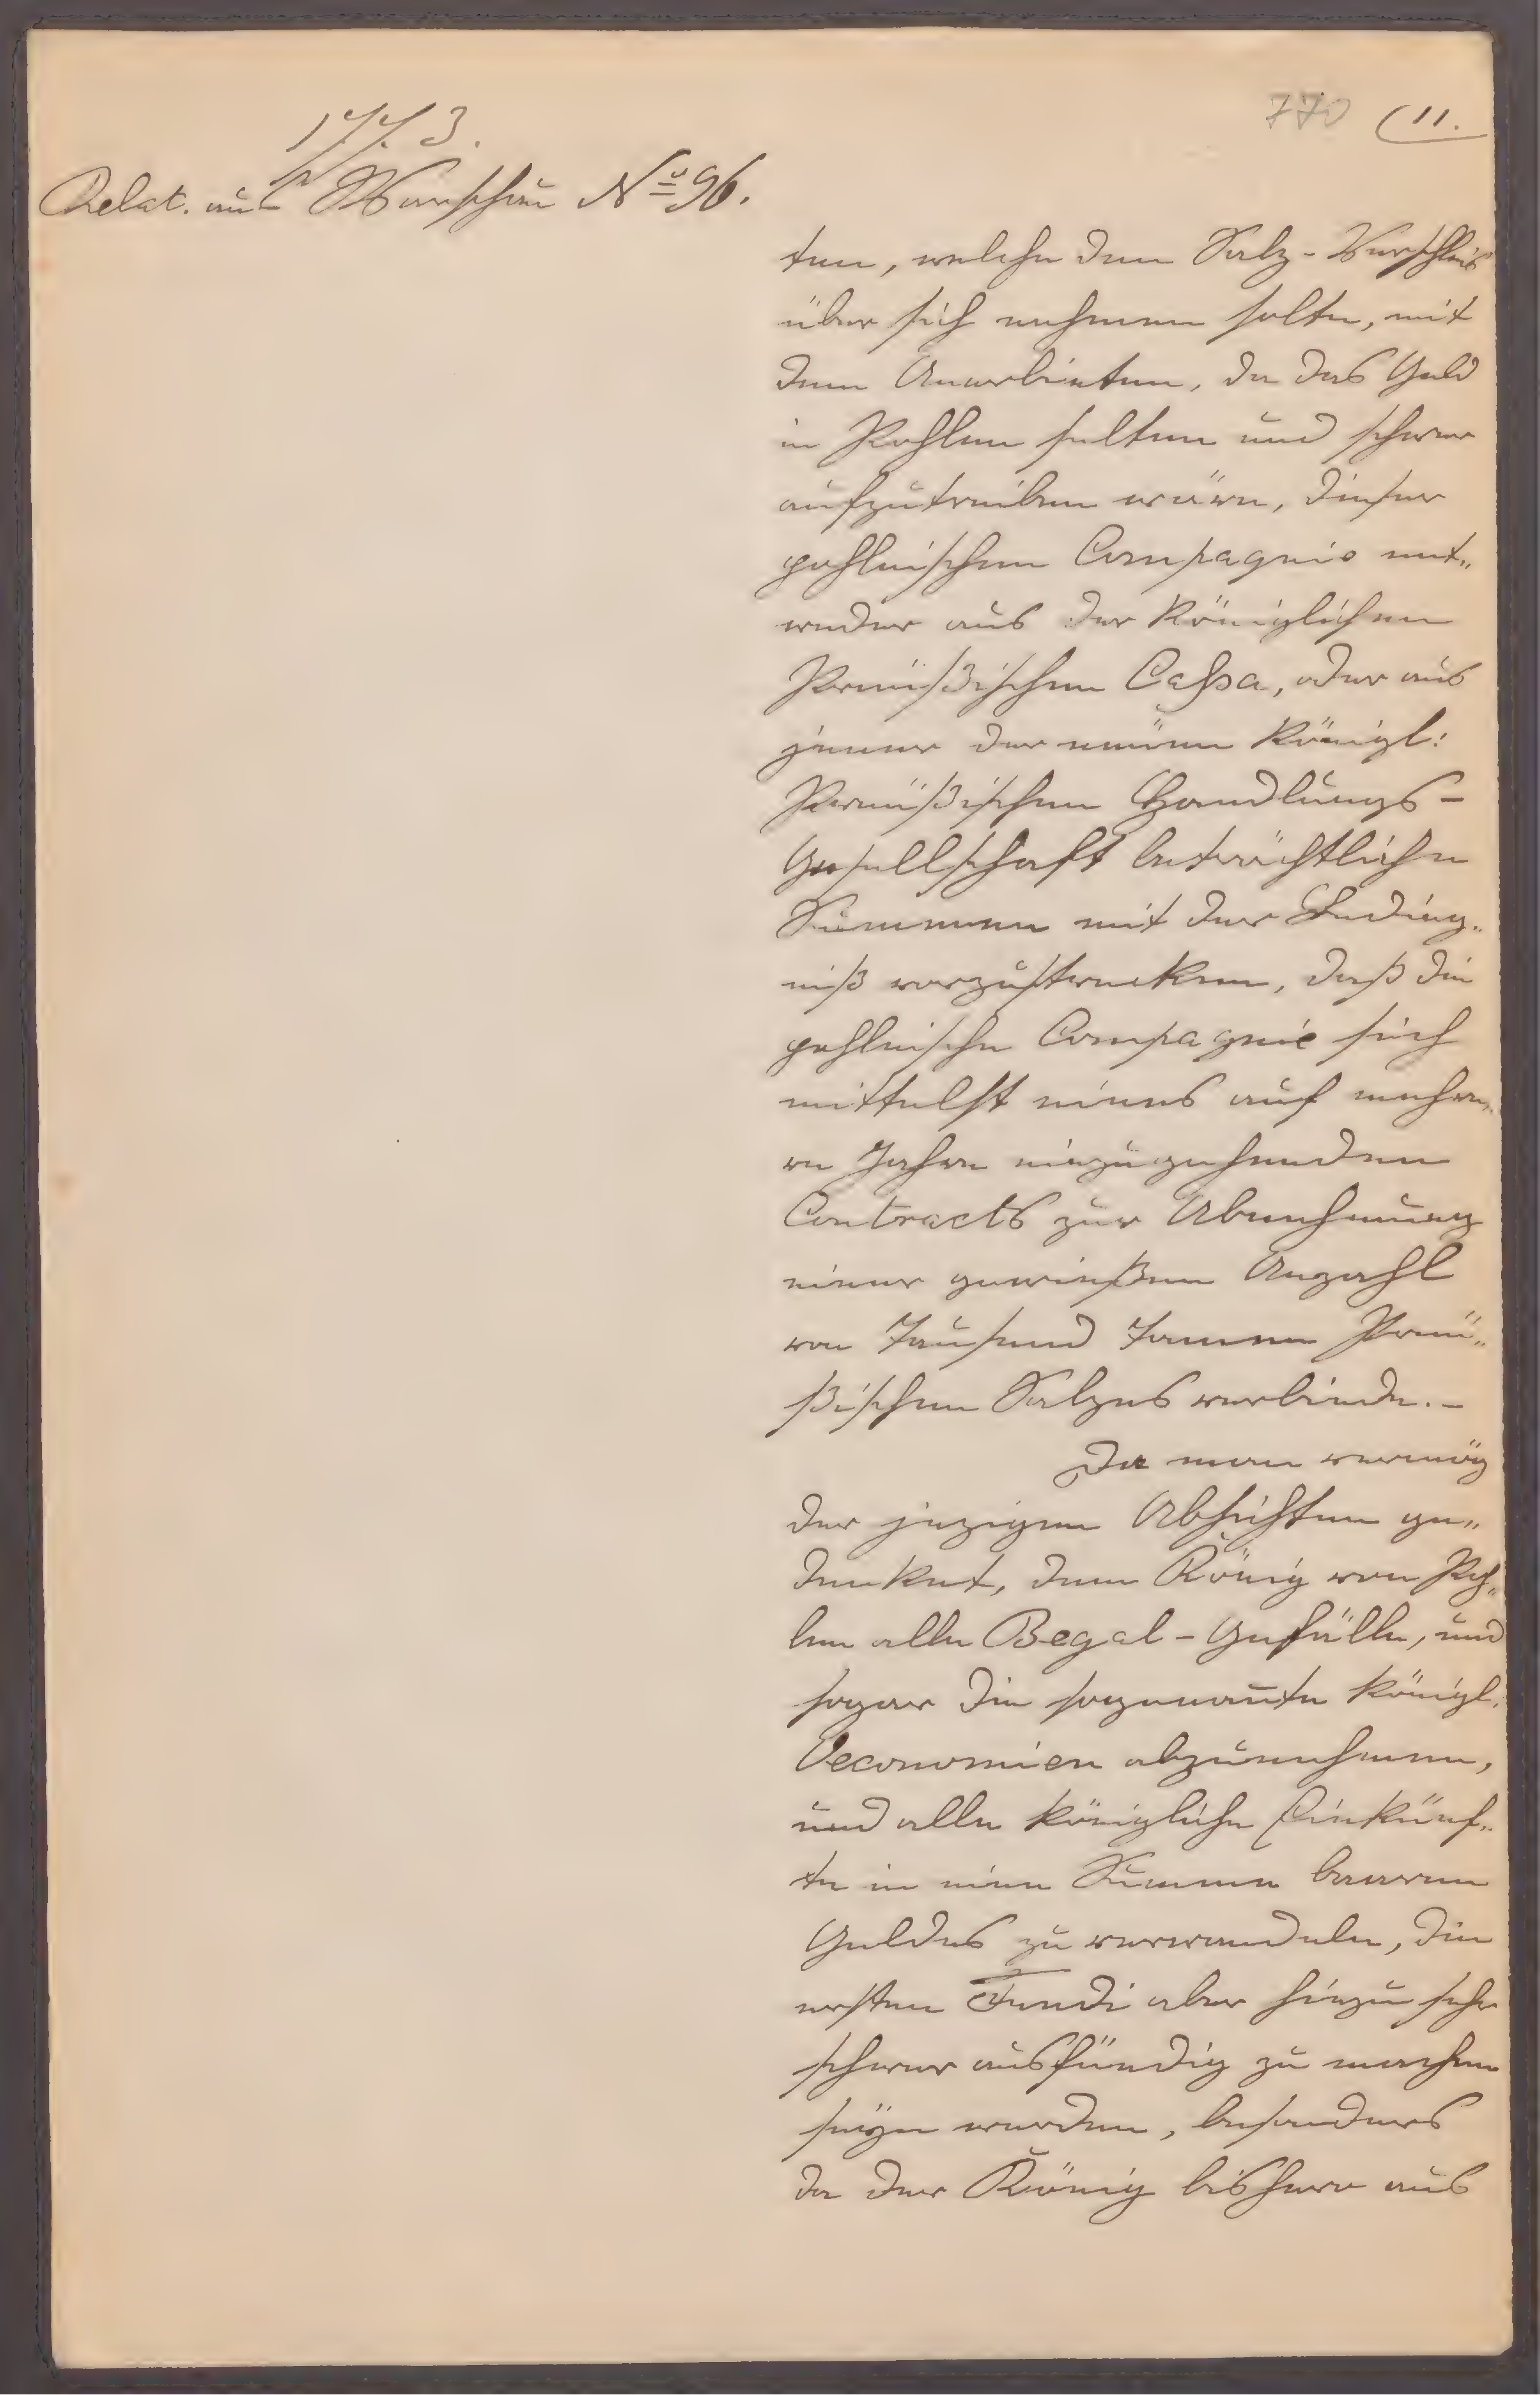 1773.
770 (11.
Relat. aus Warschau No 96.
ten, welche den Salz-Verschleiß
über sich nehmen solte, mit
dem Anerbieten, da das Geld
in Pohlen selten und schwer
aufzutreiben wäre, dieser
pohlnischen Compagnie ent„
weder aus der Königlichen
Preüßischen Cassa, oder aus
jener der neüen Königl:
Preüßischen Handlungs-
Gesellschaft beträchtliche
Summen mit der Beding„
niß vorzustrecken, daß die
pohlnische Compagnie sich
mittelst eines auf mehre„
re Jahre einzugehenden
Contracts zur Abnehmung
einer gewießen Anzahl
von Tausend Tonnen Preü„
ßischen Salzes verbinde.-
Da man vermög
der jezigen Absichten ge„
denket, dem König von Poh„
len alle Regal-Gefälle, und
sogar die sogenante Königl.
Oeconomien abzunehmen,
und alle königliche Einkünf„
te in eine Summe baaren
Geldes zu verwandeln, die
ersten Fundi aber hiezu sehr
schwer ausfündig zu machen
seÿn werden, besonders
da der König bishero aus